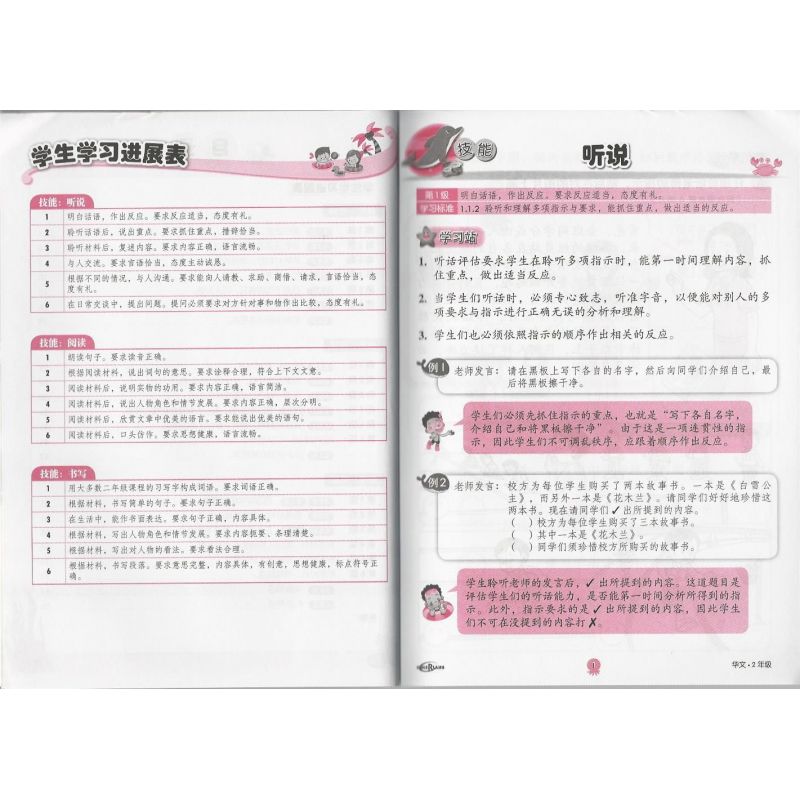 学生学习进展表
技能：听说
1 明白话语，作出反应。要求反应适当，态度有礼。
2 聆听话语后，说出重点。要求抓住重点，措辞恰当。
3 聆听材料后，复述内容。要求内容正确，语言流畅。
4 与人交流。要求言语恰当，态度主动诚恳。
5 根据不同的情况，与人沟通。要求能向人请教、求助、商借、请求，言语恰当，态
度有礼。
6 在日常交谈中，提出问题。提问必须要求对方针对事和物作出比较，态度有礼。
技能：阅读
1 朗读句子。要求读音正确。
2 根据阅读材料，说出词句的意思。要求诠释合理，符合上下文文意。
3 阅读材料后，说明实物的功用。要求内容正确，语言简洁。
4 阅读材料后，说出人物角色和情节发展。要求内容正确，层次分明。
5 阅读材料后，欣赏文章中优美的语言。要求能说出优美的语句。
6 阅读材料后，口头仿作。要求思想健康，语言流畅。
技能：书写
1 用大多数二年级课程的习写字构成词语。要求词语正确。
2 根据材料，书写简单的句子。要求句子正确。
3 在生活中，能作书面表达。要求句子正确，内容具体。
4 根据材料，写出人物角色和情节发展。要求内容扼要、条理清楚。
5 根据材料，写出对人物的看法。要求看法合理。
6 根据材料，书写段落。要求意思完整，内容具体，有创意，思想健康，标点符号正
确。
技能
听说
第1级 明白话语，作出反应。要求反应适当，态度有礼。
学习标准 1.1.2 聆听和理解多项指示与要求，能抓住重点，做出适当的反应。
学习站
1. 听话评估要求学生在聆听多项指示时，能第一时间理解内容，抓
住重点，做出适当反应。
2. 当学生们听话时，必须专心致志，听准字音，以便能对别人的多
项要求与指示进行正确无误的分析和理解。
3. 学生们也必须依照指示的顺序作出相关的反应。
例1 老师发言：请在黑板上写下各自的名字，然后向同学们介绍自己，最
后将黑板擦干净。
学生们必须先抓住指示的重点，也就是“写下各自名字，
介绍自己和将黑板擦干净”。由于这是一项连贯性的指
示，因此学生们不可调乱秩序，应跟着顺序作出反应。
例2 老师发言：校方为每位学生购买了两本故事书。一本是《白雪公
主》，而另外一本是《花木兰》。请同学们好好地珍惜这
两本书。现在请同学们✓出所提到的内容。
（ ）校方为每位学生购买了三本故事书。
（ ）其中一本是《花木兰》。
（ ）同学们须珍惜校方所购买的故事书。
学生聆听老师的发言后，✓出所提到的内容。这道题目是
评估学生们的听话能力，是否能第一时间分析所得到的指
示。此外，指示要求的是✓出所提到的内容，因此学生
们不可在没提到的内容打✗。
1
华文·2年级